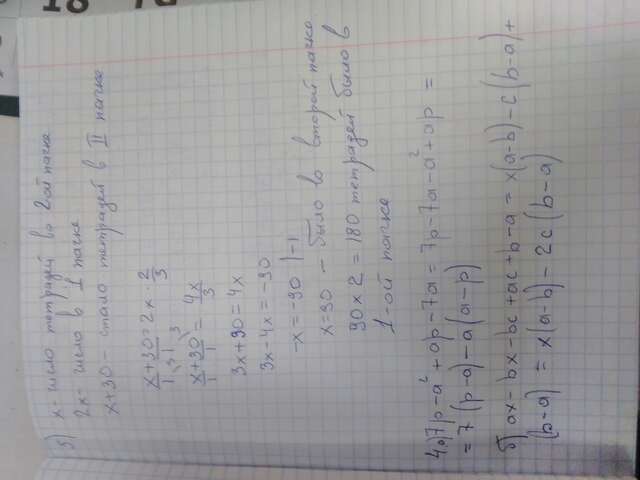 5) x - число тетрадей во 2ой пачке
2x - число в 1 пачке
x+30 - стало тетрадей в II пачке
x+30/1 = 2x · 2/3
x+30/1 = 4x/3
3x+90=4x
3x-4x=-90
-x=-90 |-1
x=90 - было во второй пачке
90 x 2 = 180 тетрадей было в
1-ой пачке
4a) 7p-a²+ap-7a = 7p-7a-a²+ap =
= 7(p-a)-a(a-p)
б) ax-bx-bc+ac+b-a = x(a-b)-c(b-a)+
(b-a) = x(a-b)-2c(b-a)
18